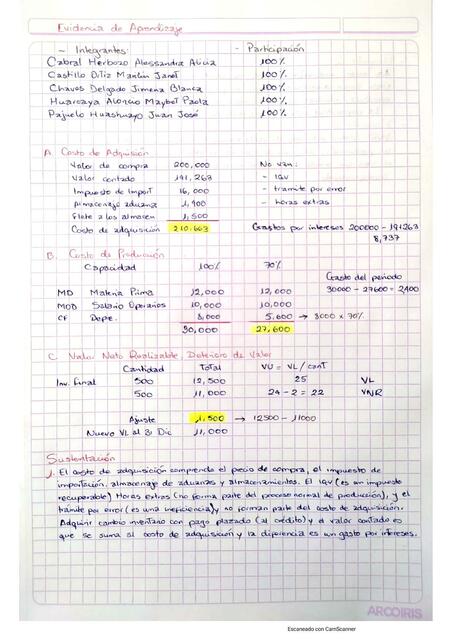 Evidencia de Aprendizaje
~ Integrantes: - Participación
Cabral Herbozo Alessandra Alicia 100%
Castillo Ortiz Marilin Janet 100%
Chavos Delgado Jimena Blanca 100%
Huarcaya Alonso Maybet Paola 100%
Pajuelo Huashuayo Juan José 100%
A. Costo de Adquisición
Valor de compra 200,000 No van:
Valor contado 191,263 - IGV
Impuesto de Import 16,000 - tramite por error
Almacenaje aduanas 1,900 - horas extras
Flete a los almacen 1,500
Costo de adquisición 210.663 Gastos por intereses 200000 - 191263
8,737
B. Costo de Producción
Capacidad 100% 70%
Gasto del periodo
MD Materia Prima 12,000 12,000 30000 - 27600 = 2,400
MOD Salario Operarios 10,000 10,000
CF Depe. 8,000 5,600 → 8000 x 70%
30,000 27,600
C. Valor Neto Realizable, Deterioro de Valor
Cantidad Total VU = VL / cant
Inv. Final 500 12,500 25 VL
500 11,000 24 - 2 = 22 VNR
Ajuste 1,500 → 12500 - 11000
Nuevo VL al 31 Dic 11,000
Sustentación
1. El costo de adquisición comprende el pecio de compra, el impuesto de
importación, almacenaje de aduanas y almacenamientos. El IGV (es un impuesto
recuperable) Horas extras (no forma parte del proceso normal de producción), y el
trámite por error (es una ineficiencia), no forman parte del costo de adquisición.
Adquirir cambio inventario con pago plazado (al crédito) y el valor contado es
que se suma al costo de adquisición y la diferencia es un gasto por intereses.
ARCOIRIS
Escaneado con CamScanner